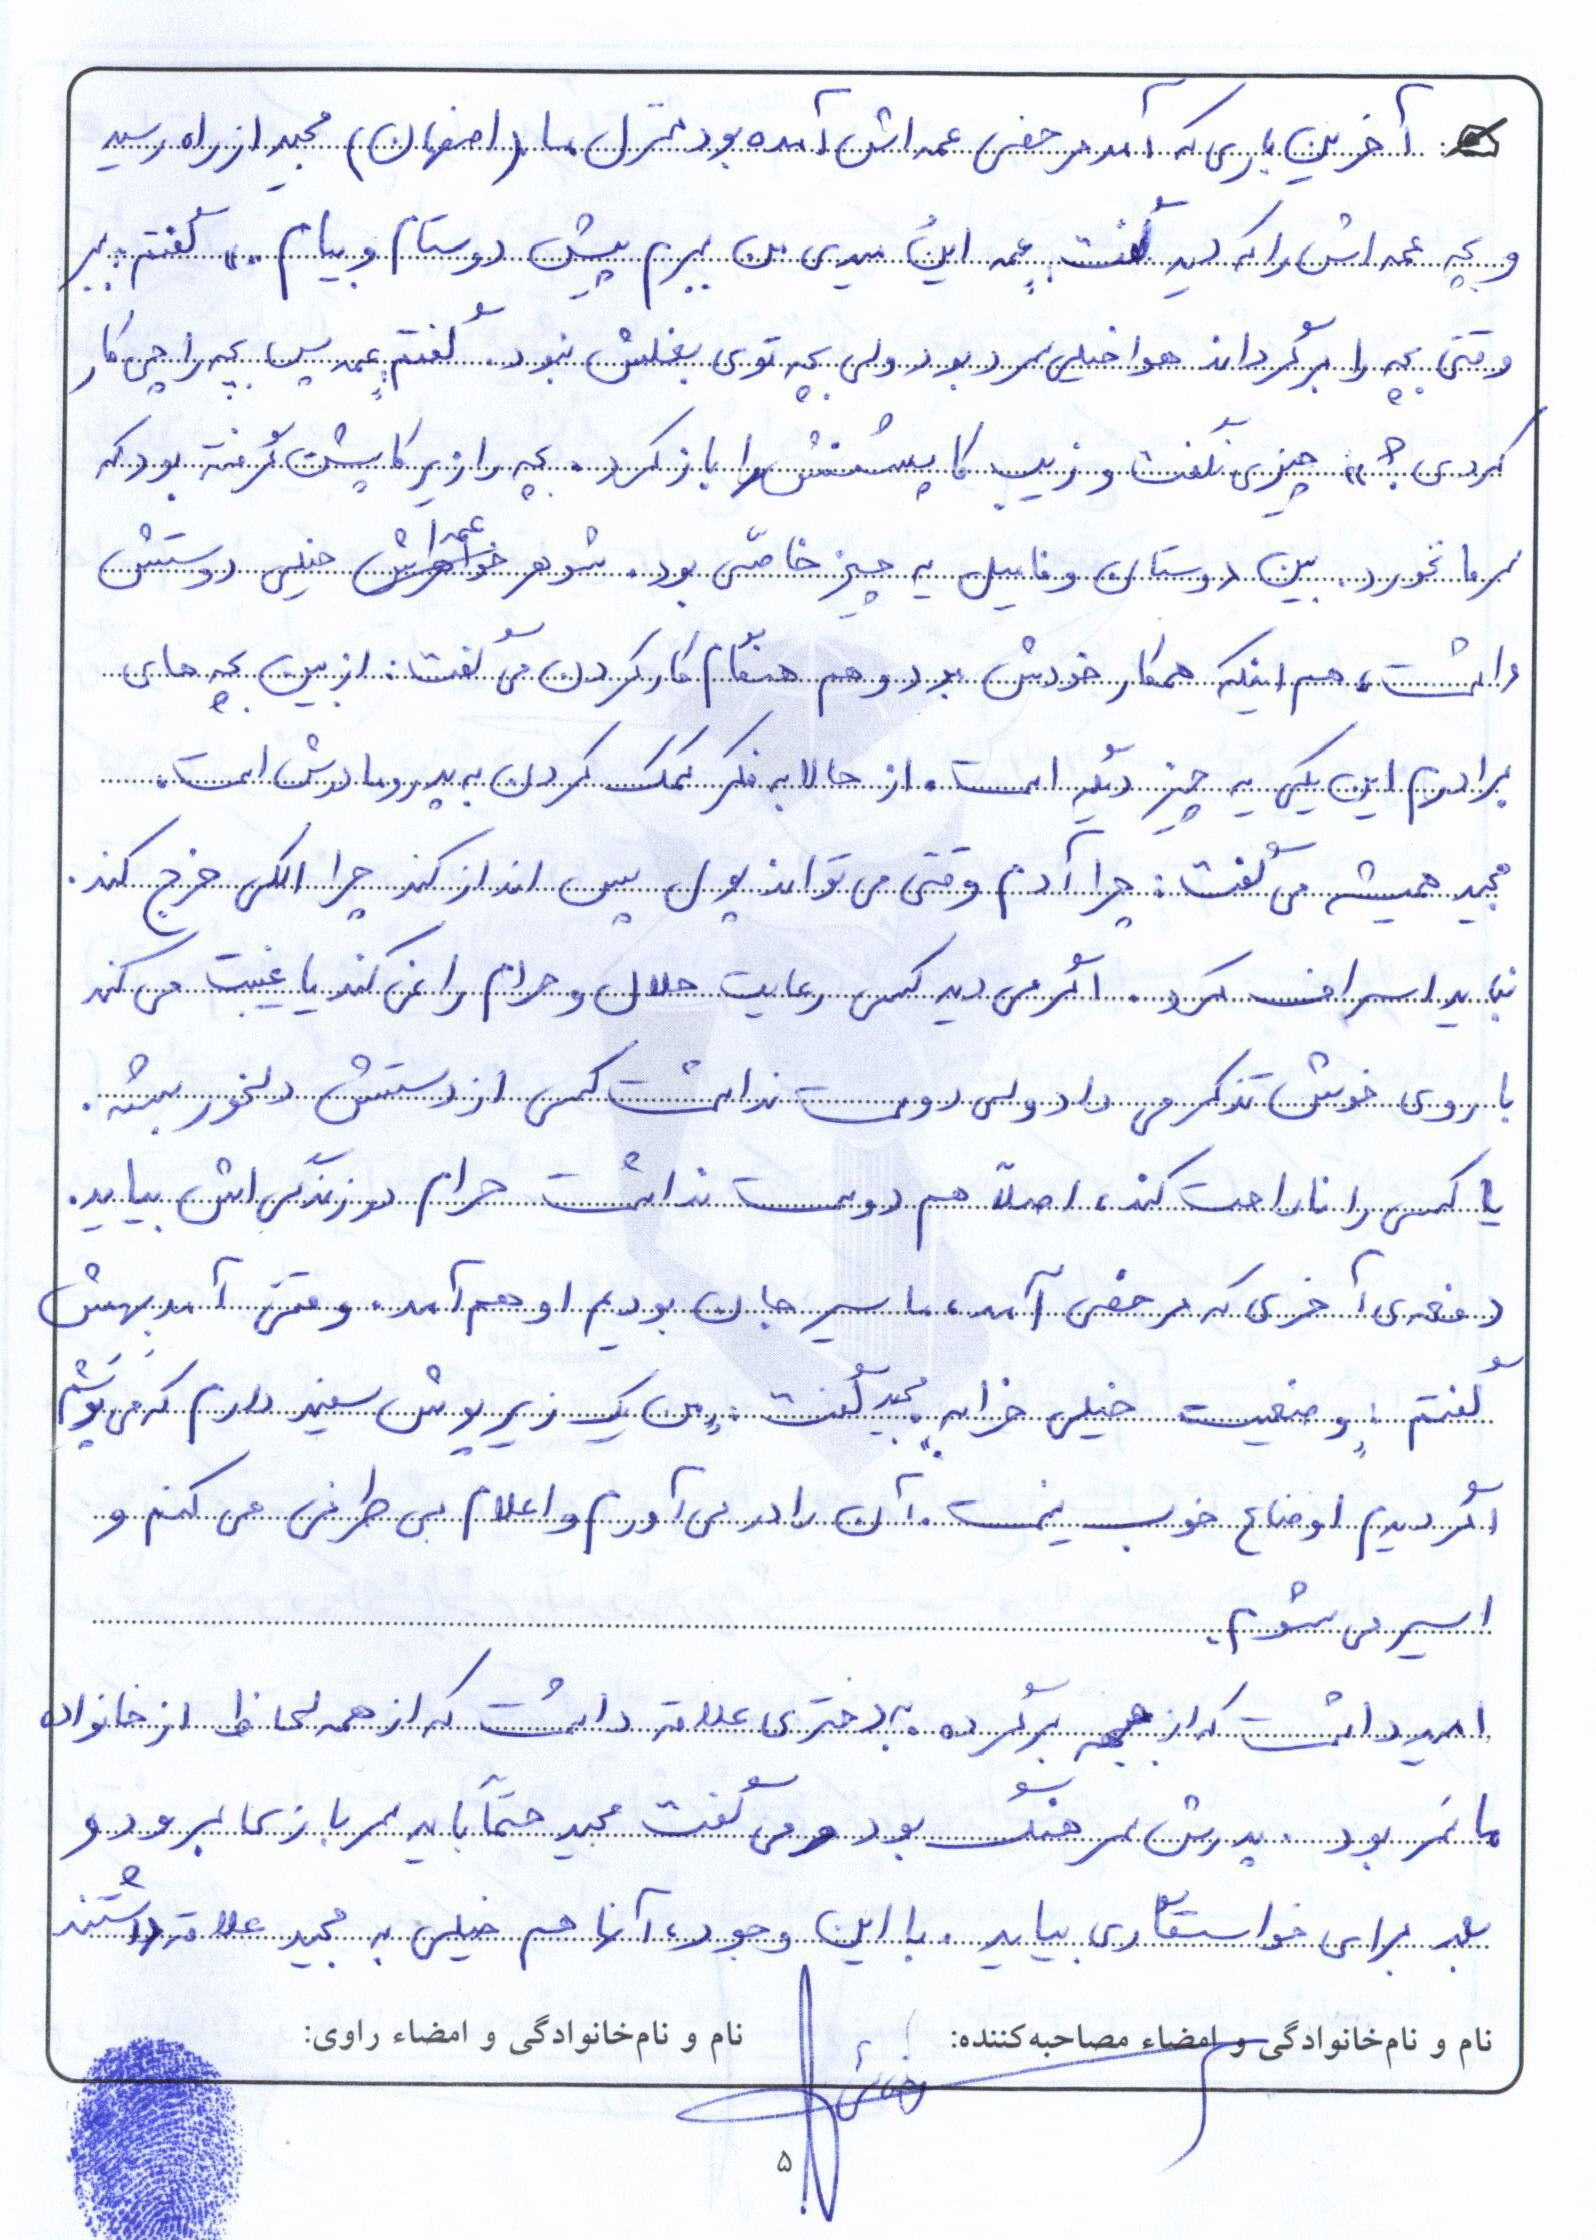 آخرین باری که آمد مرخصی عمه اش آمده بود منزل ما (اصفهان) مجید از راه رسید
و بچه عمه اش را که دید گفت: «عمه اینُ میدی من ببرم پیش دوستام و بیام.» گفتم: ببر
وقتی بچه را برگرداند هوا خیلی سرد بود ولی بچه توی بغلش نبود. گفتم: «عمه پس بچه را چی کار
کردی؟» چیزی نگفت و زیپ کاپشنش را باز کرد. بچه را زیر کاپشن گرفته بود که
سرما نخورد. بین دوستان و فامیل یه چیز خاصّی بود. شوهر عمه اش خیلی دوستش
داشت، هم اینکه همکار خودش بود و هم هنگام کار کردن می گفت: از بین بچه های
برادرم این یکی یه چیز دیگه است. از حالا به فکر کمک کردن به پدر و مادرش است.
مجید همیشه می گفت: چرا آدم وقتی می تواند پول پس انداز کند چرا الکی خرج کند.
نباید اسراف کرد. اگر می دید کسی رعایت حلال و حرام را نمی کند یا غیبت می کند
با روی خوش تذکر می داد ولی دوست نداشت کسی از دستش دلخور بشه.
یا کسی را ناراحت کند، اصلاً هم دوست نداشت حرام در زندگی اش بیاید.
دفعه ی آخری که مرخصی آمد، ما سیرجان بودیم او هم آمد. وقتی آمد بهش
گفتم: «وضعیت خیلی خرابه» مجید گفت: «من یک زیرپوش سفید دارم که می پوشم
اگر دیدم اوضاع خوب نیست. آن را در می آورم و اعلام بی طرفی می کنم و
اسیر می شوم.
امید داشت که از جبهه برگرده. به دختری علاقه داشت که از همه لحاظ از خانواده
ما سَر بود. پدرش سرهنگ بود و می گفت مجید حتماً باید سربازی برود و
بعد برای خواستگاری بیاید. با این وجود، آنها هم خیلی به مجید علاقه داشتند
نام و نام‌خانوادگی و امضاء مصاحبه‌کننده: نام و نام‌خانوادگی و امضاء راوی:
۵